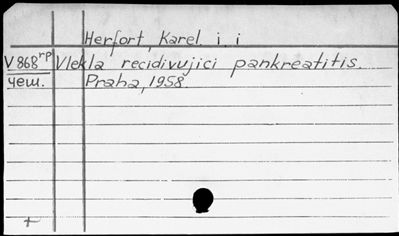 Herfort, Karel. i. i
V 868 rp Vlekla recidivujici pankreatitis.
чеш. Praha, 1958.
+